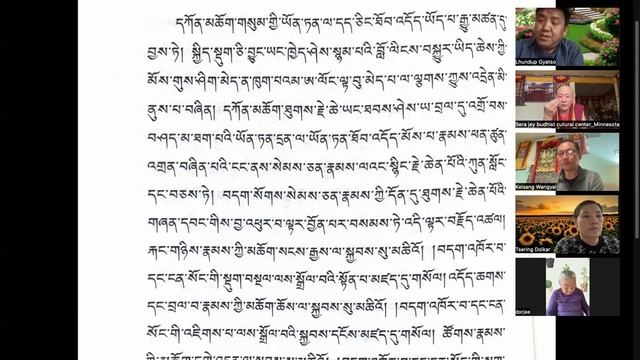 དཀོན་མཆོག་གསུམ་གྱི་ཡོན་ཏན་ལ་དད་ཅིང་ཐོབ་འདོད་ཡོད་པ་རྒྱུ་མཚན་དུ་
བྱས་ཏེ། སྐྱིད་སྡུག་ཅི་བྱུང་ཡང་ཁྱེད་ཤེས་སྙམ་པའི་བློ་ལིངས་བསྐྱུར་ཡིད་ཆེས་ཀྱི་
མོས་གུས་ཤིག་མེད་ན་ཁུག་པའམ་ཨ་ལོང་ལྟ་བུ་མེད་པ་ལ་ལྕགས་ཀྱུས་འདྲེན་མི་
ནུས་པ་བཞིན། དཀོན་མཆོག་ཐུགས་རྗེ་ཆེ་ཡང་ཐབས་ཤེས་ཡ་བྲལ་དུ་འགྲོ་བས་
བཤད་མ་ཐག་པའི་ཡོན་ཏན་དྲན་ལ་ཡོན་ཏན་ཐོབ་འདོད་མོས་པ་རྣམས་ཕན་ཚུན་
འགྲན་བཞིན་པའི་ངང་ནས་སེམས་ཅན་རྣམས་ལའང་སྙིང་རྗེ་ཆེན་པོའི་ཀུན་སློང་
དང་བཅས་ཏེ། བདག་སོགས་སེམས་ཅན་རྣམས་ཀྱི་དོན་དུ་ཐུགས་རྗེ་ཆེན་པོའི་
གཞན་དབང་གིས་བྱ་འཕུར་བ་ལྟར་བྱོན་པར་བསམས་ཏེ་འདི་ལྟར་བརྗོད་འཚལ།
རྐང་གཉིས་རྣམས་ཀྱི་མཆོག་སངས་རྒྱས་ལ་སྐྱབས་སུ་མཆིའོ། །བདག་འཁོར་བ་
དང་ངན་སོང་གི་སྡུག་བསྔལ་ལས་སྒྲོལ་བའི་སྟོན་པ་མཛད་དུ་གསོལ། འདོད་ཆགས་
དང་བྲལ་བ་རྣམས་ཀྱི་མཆོག་ཆོས་ལ་སྐྱབས་སུ་མཆིའོ། །བདག་འཁོར་བ་དང་ངན་
སོང་གི་འཇིགས་པ་ལས་སྒྲོལ་བའི་སྐྱབས་དངོས་མཛད་དུ་གསོལ། ཚོགས་རྣམས་
Lhundup Gyatso
Sera jey budhist cutural center_Minnesota
Kelsang Wangyal
Tsering Dolkar
dorjee